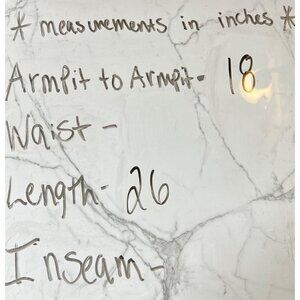 * measurements in inches *
Armpit to Armpit- 18
Waist -
Length- 26
Inseam-